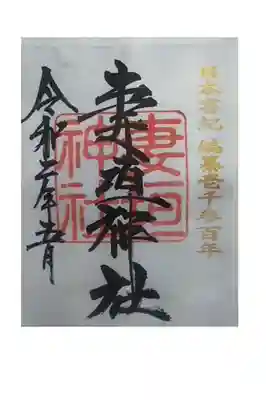 日本書紀 編纂壱千参百年
妻垣神社
妻垣
神社
令和二年五月